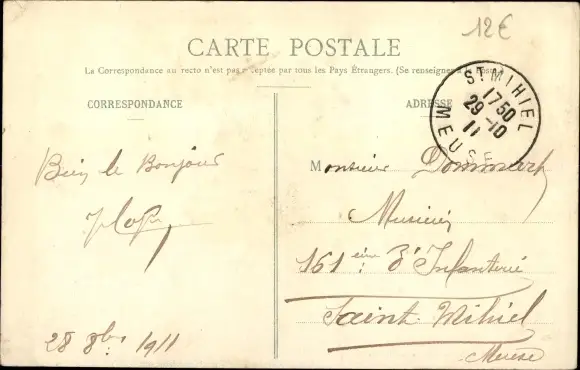 12€
CARTE POSTALE
La Correspondance au recto n'est pas acceptée par tous les Pays Étrangers. (Se renseigner à la Poste)
CORRESPONDANCE
ADRESSE
ST MIHIEL
1750
29-10
11
MEUSE
Bien le Bonjour
28 8bre 1911
Monsieur
Musicien
161 ème d'Infanterie
Saint Mihiel
Meuse